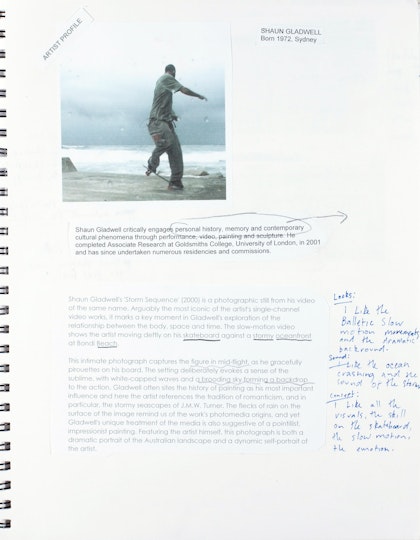 ARTIST PROFILE
SHAUN GLADWELL
Born 1972, Sydney
Shaun Gladwell critically engages personal history, memory and contemporary
cultural phenomena through performance, video, painting and sculpture. He
completed Associate Research at Goldsmiths College, University of London, in 2001
and has since undertaken numerous residencies and commissions.
Shaun Gladwell's 'Storm Sequence' (2000) is a photographic still from his video
of the same name. Arguably the most iconic of the artist's single-channel
video works, it marks a key moment in Gladwell's exploration of the
relationship between the body, space and time. The slow-motion video
shows the artist moving deftly on his skateboard against a stormy oceanfront
at Bondi Beach.
This intimate photograph captures the figure in mid-flight, as he gracefully
pirouettes on his board. The setting deliberately invokes a sense of the
sublime, with white-capped waves and a brooding sky forming a backdrop
to the action. Gladwell often sites the history of painting as his most important
influence and here the artist references the tradition of romanticism, and in
particular, the stormy seascapes of J.M.W. Turner. The flecks of rain on the
surface of the image remind us of the work's photomedia origins, and yet
Gladwell's unique treatment of the media is also suggestive of a pointilist,
impressionist painting. Featuring the artist himself, this photograph is both a
dramatic portrait of the Australian landscape and a dynamic self-portrait of
the artist.
Looks:
I Like the
Balletic Slow
motion movements
and the dramatic
background.
Sound:
I Like the ocean
crashing and the
sound of the storm
concept:
I Like all the
visuals, the skill
on the skateboard,
the slow motion,
the emotion.